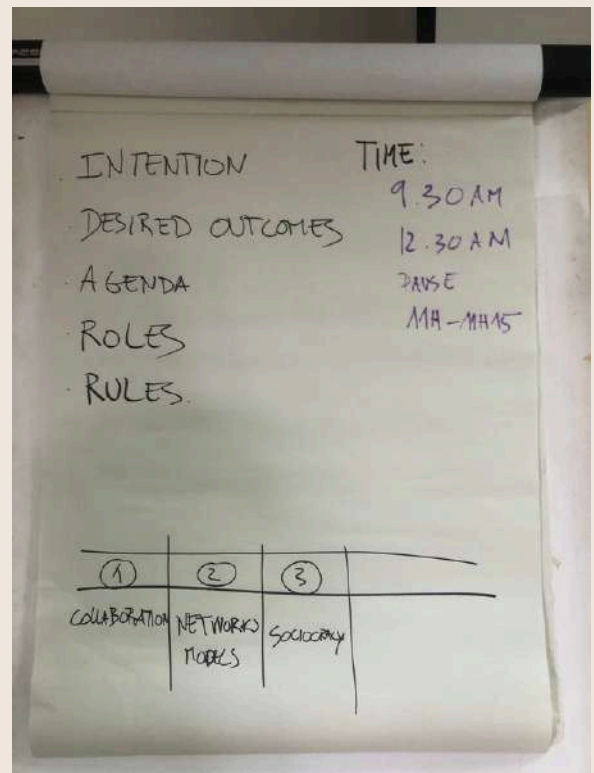 INTENTION
DESIRED OUTCOMES
AGENDA
ROLES
RULES.
TIME:
9.30 AM
12.30 AM
PAUSE
11H-11H15
1
COLLABORATION
2
NETWORKS
MODELS
3
SOCIOCRACY